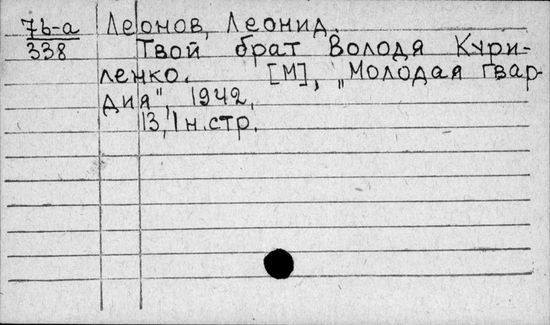 7b-a Леонов, Леонид.
338 Твой брат Володя Кури-
ленко. [М], „Молодая гвар-
дия", 1942.
13, 1 н. стр.